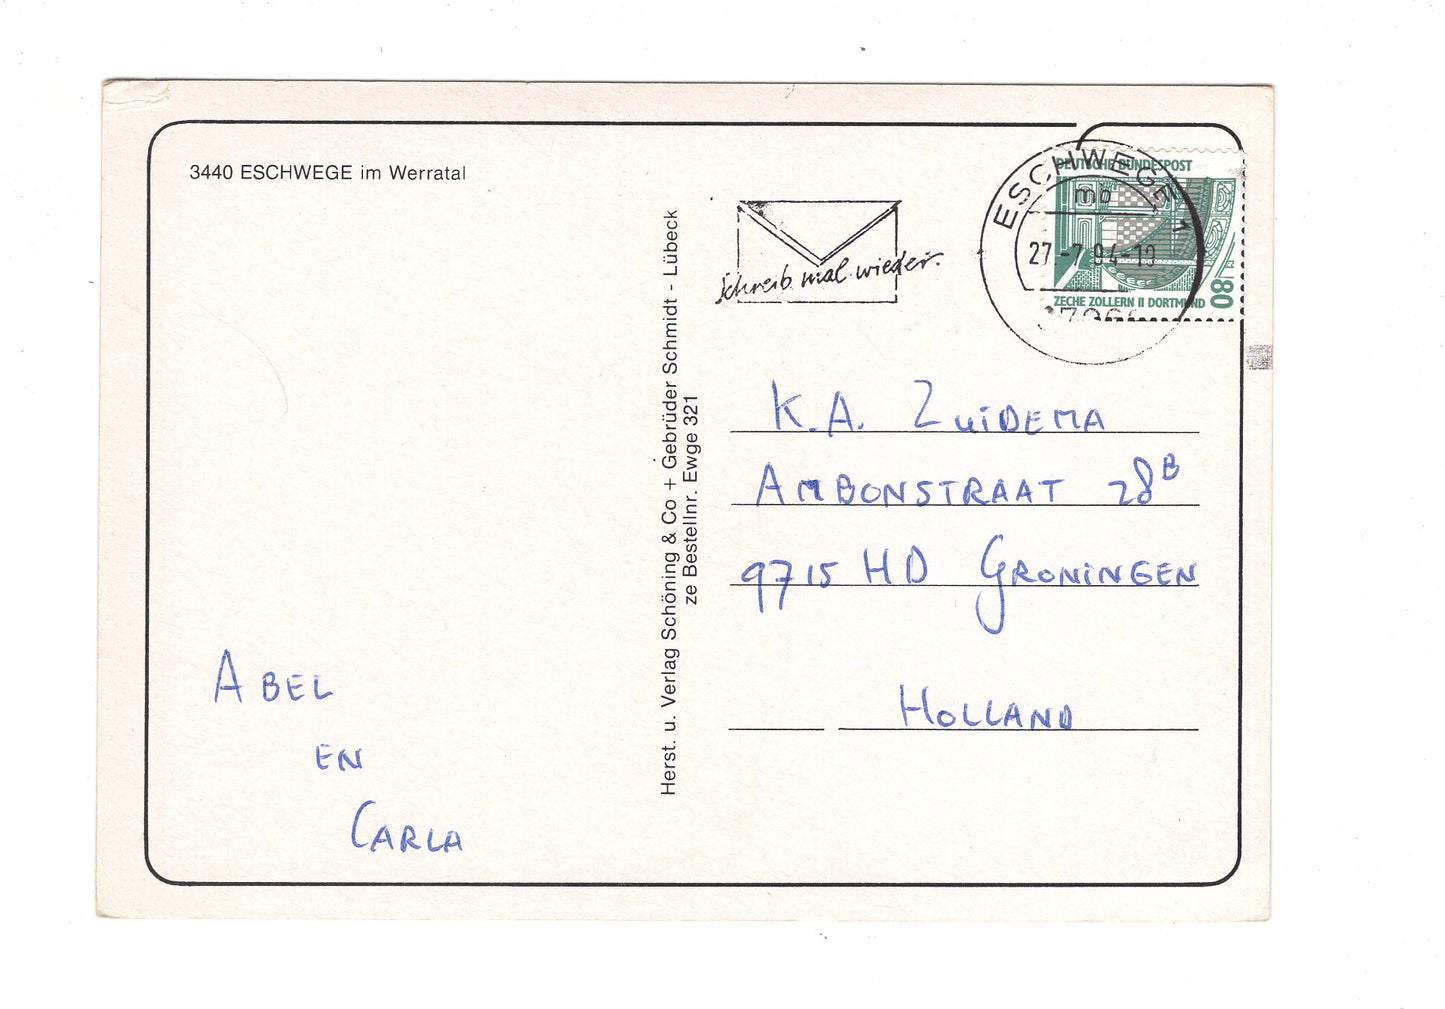 3440 ESCHWEGE im Werratal
Herst. u. Verlag Schöning & Co + Gebrüder Schmidt - Lübeck
ze Bestellnr. Ewge 321
Schreib mal wieder.
ESCHWEGE 1
mb
27.-7.94-19
DEUTSCHE BUNDESPOST
ZECHE ZOLLERN II DORTMUND
80
K.A. ZuiDEMA
AMBONSTRAAT 28B
9715 HD GRONINGEN
HOLLAND
ABEL
EN
CARLA